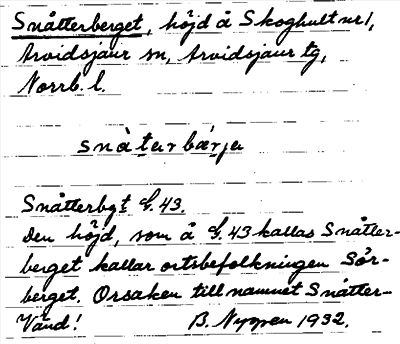 Snåtterberget, höjd å Skoghult nr 1,
Arvidsjaur sn, Arvidsjaur tg,
Norrb. l.
snàtɩrbárjɩ
Snåtterbgt E. 43.
Den höjd, som å E. 43 kallas Snåtter-
berget kallar ortsbefolkningen Sör-
berget. Orsaken till namnet Snåtter-
Vänd! B. Nygren 1932.